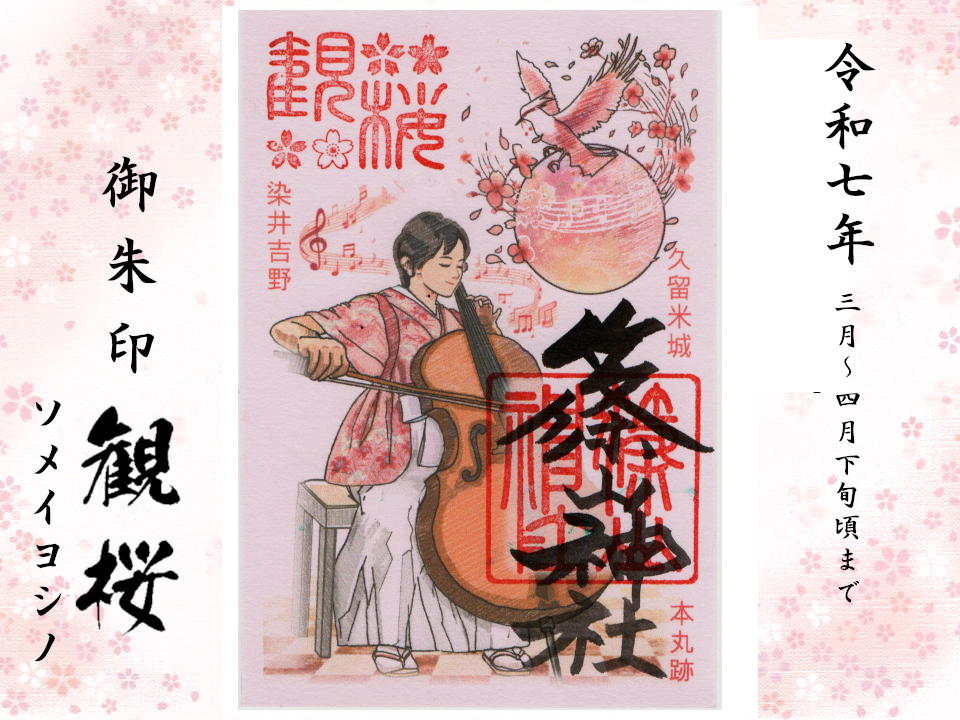 令和七年
三月～四月下旬頃まで
観桜
染井吉野
久留米城
篠山神社
本丸跡
御朱印
観桜
ソメイヨシノ